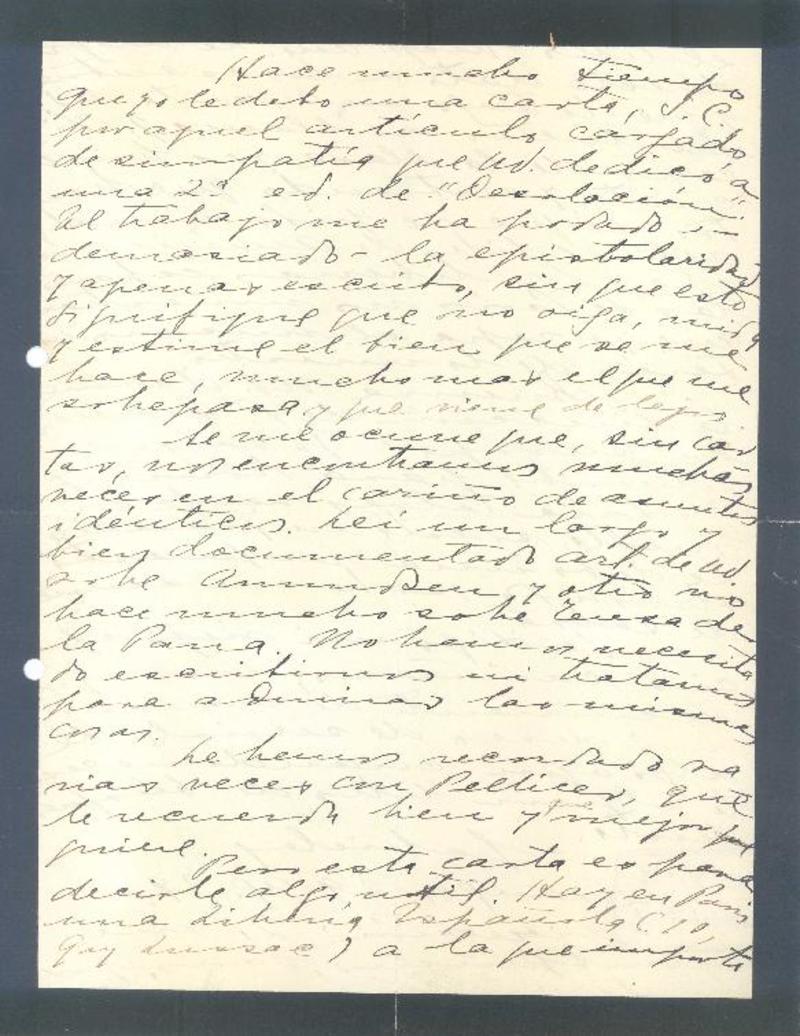 Hace mucho tiempo
que yo le debo una carta, J. C.
por aquel artículo cargado
de simpatía que Ud. dedicó a
una 2ª ed. de "Desolación".
El trabajo me ha podado
demasiado - la epistolaridad
y apenas escribo, sin que esto
signifique que no oiga, mida
y estime el bien que se me
hace, mucho mas el que me
sobrepasa y que viene de lejos
Se me ocurre que, sin car
tas, nos encontramos muchas
veces en el cariño de asuntos
idénticos. Leí un largo y
bien documentado art. de Ud
sobre Amundsen y otro no
hace mucho sobre Teresa de
la Parra. No hemos necesita
do escribirnos ni tratarnos
para admirar las mismas
cosas.
Le hemos recordado va
rias veces con Pellicer, que
le recuerda bien y mejor que
quiere.
Pero esta carta es para
decirle algo útil. Hay en Paris
una Librería Española (10,
Gay Lussac) a la que importa